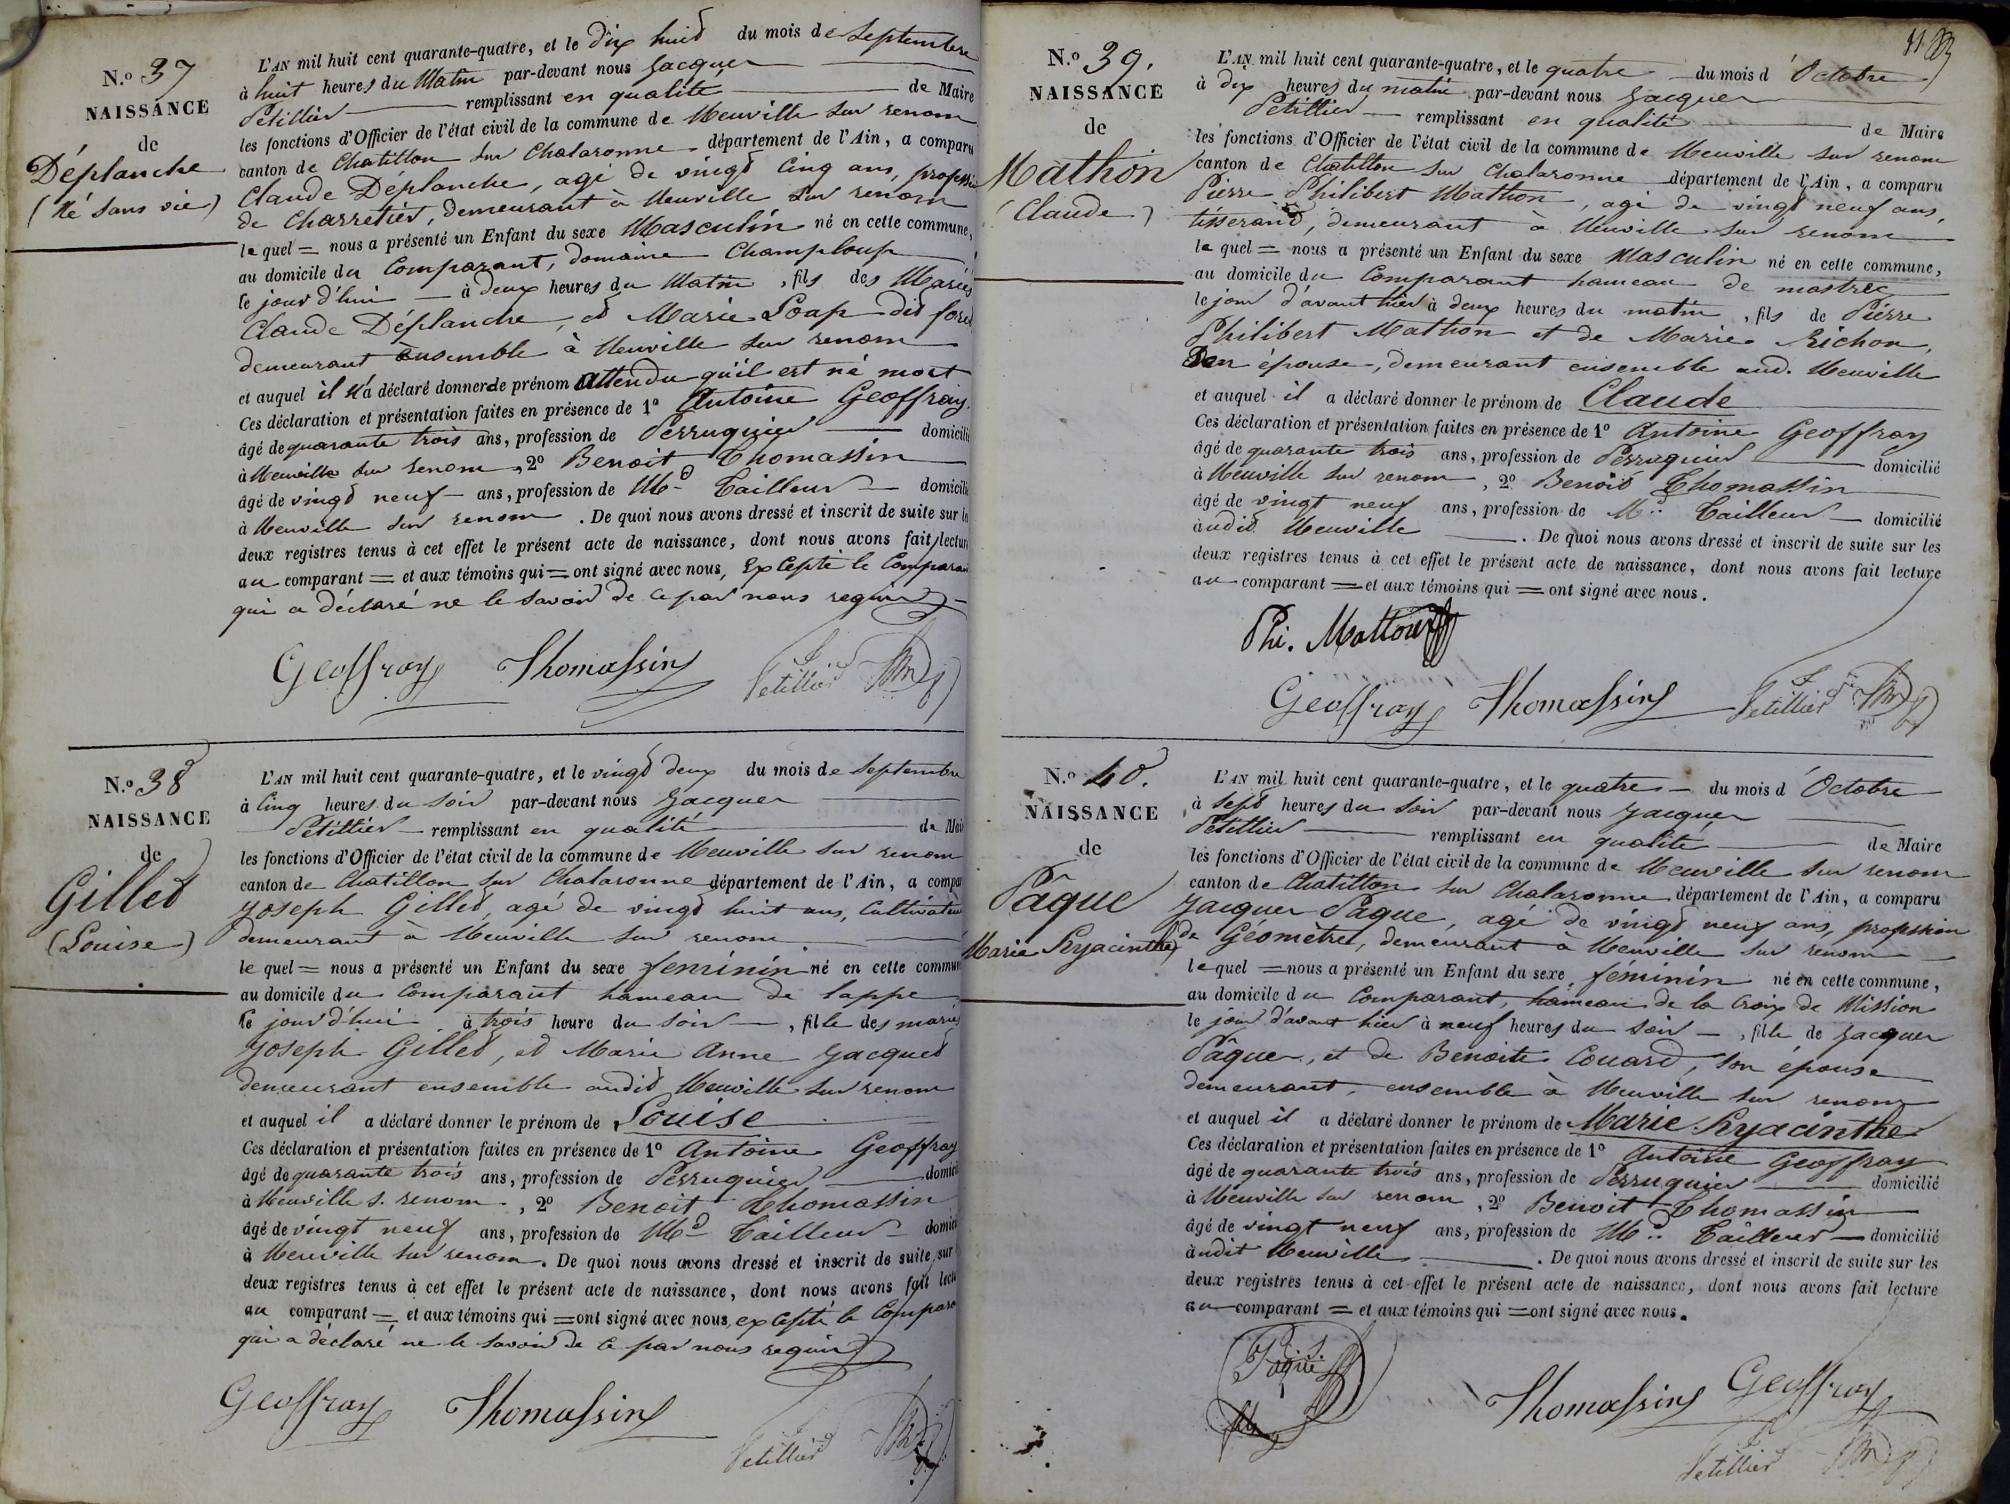 N.o 37
NAISSANCE
de
Déplanche
(Né sans vie)
L'AN mil huit cent quarante-quatre, et le dix huit du mois de Septembre
à huit heures du Matin par-devant nous Jacques
Petillier remplissant en qualité de Maire
les fonctions d'Officier de l'état civil de la commune de Neuville sur renom
canton de Chatillon sur Chalaronne département de l'Ain, a comparu
Claude Déplanche, agé de vingt Cinq ans, profession
de Charretier, demeurant à Neuville sur renom
lequel = nous a présenté un Enfant du sexe Masculin né en cette commune,
au domicile du Comparant, domaine Champloup
le jour d'hui à deux heures du Matin, fils des Mariés
Claude Déplanche, et Marie Loap dit foret
demeurant ensemble à Neuville sur renom
et auquel il n'a déclaré donner de prénom attendu qu'il est né mort
Ces déclaration et présentation faites en présence de 1º Antoine Geoffray,
âgé de quarante trois ans, profession de Perruquier domicilié
à Neuville sur renom, 2º Benoit Thomassin
âgé de vingt neuf ans, profession de Md Tailleur domicilié
à Neuville sur renom. De quoi nous avons dressé et inscrit de suite sur les
deux registres tenus à cet effet le présent acte de naissance, dont nous avons fait lecture
au comparant = et aux témoins qui = ont signé avec nous, Excepté le Comparant
qui a déclaré ne le savoir de ce par nous requis
Geoffray Thomassin Petillier
N.o 38
NAISSANCE
de
Gillet
(Louise)
L'AN mil huit cent quarante-quatre, et le vingt deux du mois de Septembre
à Cinq heures du Soir par-devant nous Jacques
Petillier remplissant en qualité de Maire
les fonctions d'Officier de l'état civil de la commune de Neuville sur renom
canton de Chatillon sur Chalaronne département de l'Ain, a comparu
Joseph Gillet, agé de vingt huit ans, Cultivateur
demeurant à Neuville sur renom
lequel = nous a présenté un Enfant du sexe féminin né en cette commune
au domicile du Comparant hameau de lappe
le jour d'hui à trois heure du Soir, fille des mariés
Joseph Gillet, et Marie Anne Jacquet
demeurant ensemble audit Neuville sur renom
et auquel il a déclaré donner le prénom de Louise
Ces déclaration et présentation faites en présence de 1º Antoine Geoffray
âgé de quarante trois ans, profession de Perruquier domicilié
à Neuville s. renom, 2º Benoit Thomassin
âgé de vingt neuf ans, profession de Md Tailleur domicilié
à Neuville sur renom. De quoi nous avons dressé et inscrit de suite sur
deux registres tenus à cet effet le présent acte de naissance, dont nous avons fait lecture
au comparant = et aux témoins qui = ont signé avec nous, excepté le Comparant
qui a déclaré ne le savoir de ce par nous requis
Geoffray Thomassin
Petillier
N.o 39.
NAISSANCE
de
Mathon
(Claude)
L'AN mil huit cent quarante-quatre, et le quatre du mois d'Octobre
à dix heures du matin par-devant nous Jacques
Petillier remplissant en qualité de Maire
les fonctions d'Officier de l'état civil de la commune de Neuville sur renom
canton de Chatillon sur Chalaronne département de l'Ain, a comparu
Pierre Philibert Mathon, agé de vingt neuf ans,
tisserand, demeurant à Neuville sur renom
lequel = nous a présenté un Enfant du sexe Masculin né en cette commune,
au domicile du Comparant hameau de mastrec
le jour d'avant hier à deux heures du matin, fils de Pierre
Philibert Mathon et de Marie Richon,
son épouse, demeurant ensemble aud. Neuville
et auquel il a déclaré donner le prénom de Claude
Ces déclaration et présentation faites en présence de 1º Antoine Geoffray
âgé de quarante trois ans, profession de Perruquier domicilié
à Neuville sur renom, 2º Benoit Thomassin
âgé de vingt neuf ans, profession de Md Tailleur domicilié
à udit Neuville. De quoi nous avons dressé et inscrit de suite sur les
deux registres tenus à cet effet le présent acte de naissance, dont nous avons fait lecture
au comparant = et aux témoins qui = ont signé avec nous.
Phi. Matton
Geoffray Thomassin Petillier
N.o 40.
NAISSANCE
de
Pâque
Marie Hyacinthe)
L'AN mil huit cent quarante-quatre, et le quatre du mois d'Octobre
à Sept heures du Soir par-devant nous Jacques
Petillier remplissant en qualité de Maire
les fonctions d'Officier de l'état civil de la commune de Neuville sur renom
canton de Chatillon sur Chalaronne département de l'Ain, a comparu
Jacques Paque, agé de vingt neuf ans, profession
de Géomètre, demeurant à Neuville sur renom
lequel = nous a présenté un Enfant du sexe féminin né en cette commune,
au domicile du Comparant, hameau de la Croix de Mission
le jour d'avant hier à neuf heures du Soir, fille de Jacques
Pâque, et de Benoite Couard, son épouse
demeurant, ensemble à Neuville sur renom
et auquel il a déclaré donner le prénom de Marie Hyacinthe
Ces déclaration et présentation faites en présence de 1º Antoine Geoffray
âgé de quarante trois ans, profession de Perruquier domicilié
à Neuville sur renom, 2º Benoit Thomassin
âgé de vingt neuf ans, profession de Md Tailleur domicilié
àudit Neuville. De quoi nous avons dressé et inscrit de suite sur les
deux registres tenus à cet effet le présent acte de naissance, dont nous avons fait lecture
au comparant = et aux témoins qui = ont signé avec nous.
Paque
Thomassin Geoffray
Petillier